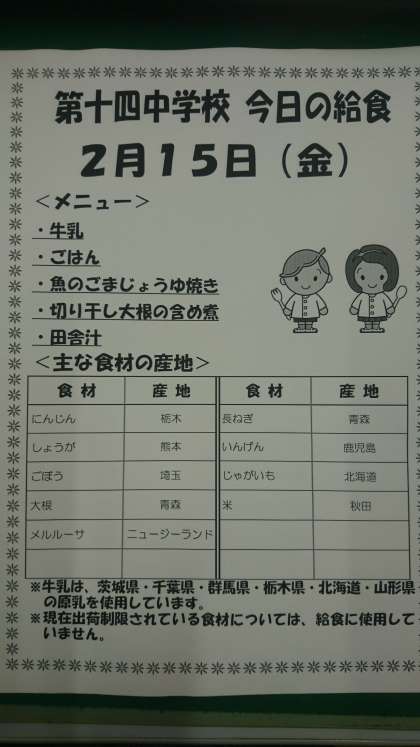 第十四中学校 今日の給食
2月15日（金）
＜メニュー＞
・牛乳
・ごはん
・魚のごまじょうゆ焼き
・切り干し大根の含め煮
・田舎汁
＜主な食材の産地＞
食材 産地 食材 産地
にんじん 栃木 長ねぎ 青森
しょうが 熊本 いんげん 鹿児島
ごぼう 埼玉 じゃがいも 北海道
大根 青森 米 秋田
メルルーサ ニュージーランド
※牛乳は、茨城県・千葉県・群馬県・栃木県・北海道・山形県
の原乳を使用しています。
※現在出荷制限されている食材については、給食に使用して
いません。